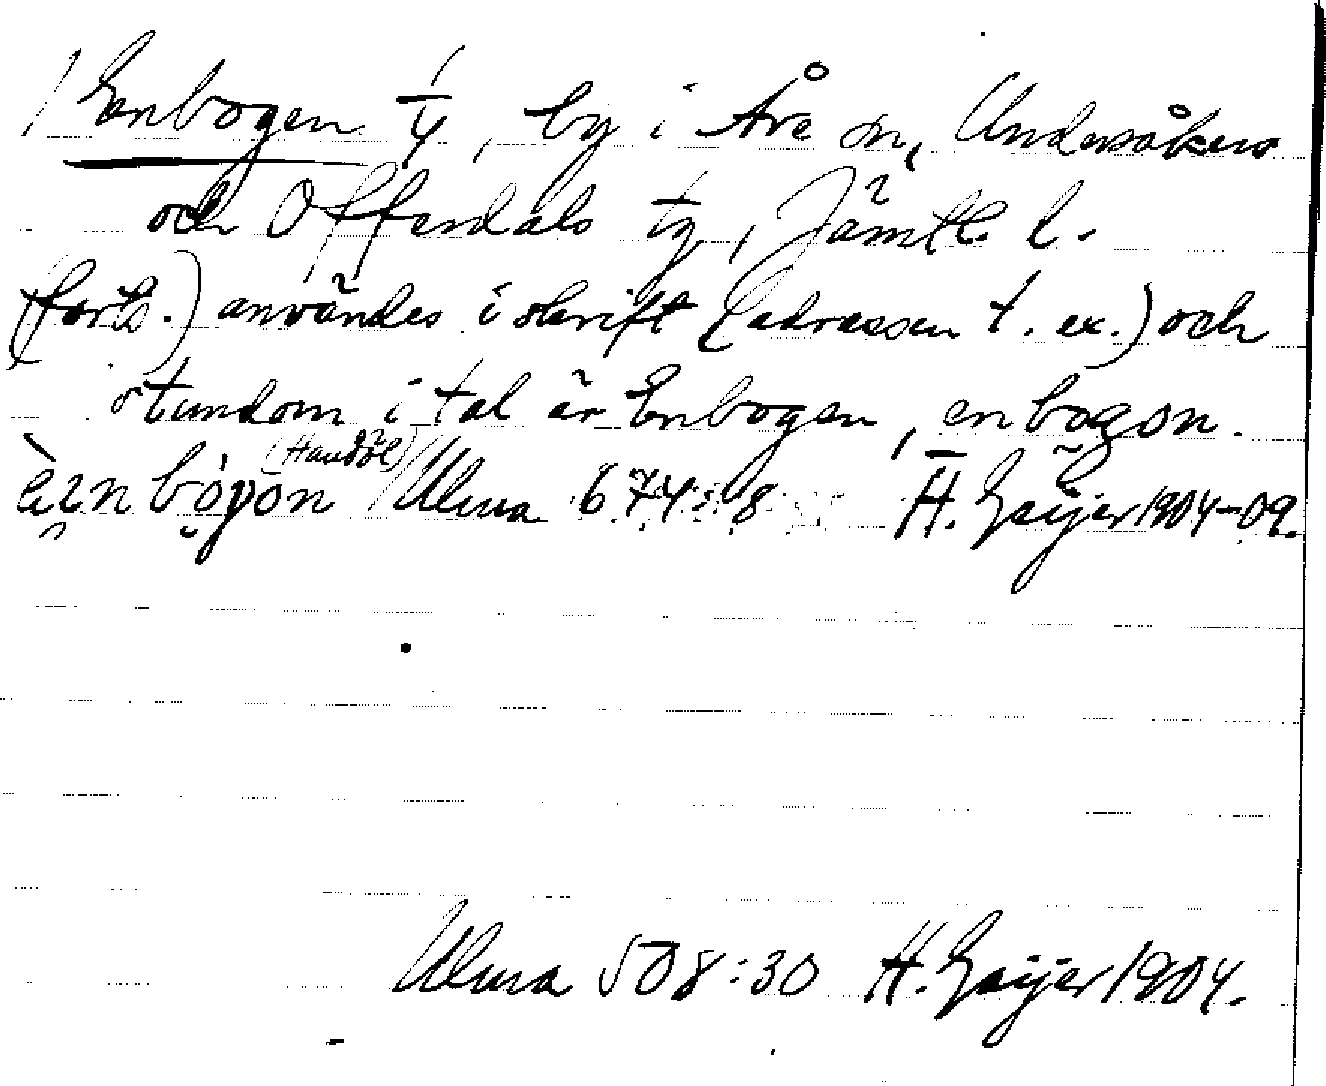 / Enbogen 1/4, by i Åre sn, Undersåkers
och Offerdals tg, Jämtl. l.
(forts.) användes i skrift (adressen t. ex.) och
stundom i tal är Enbogen, enbogon.
(Handöl)
bògon / Ulma 674:8 H. Geijer 1904-09.
Ulma 508:30 H. Geijer 1904.